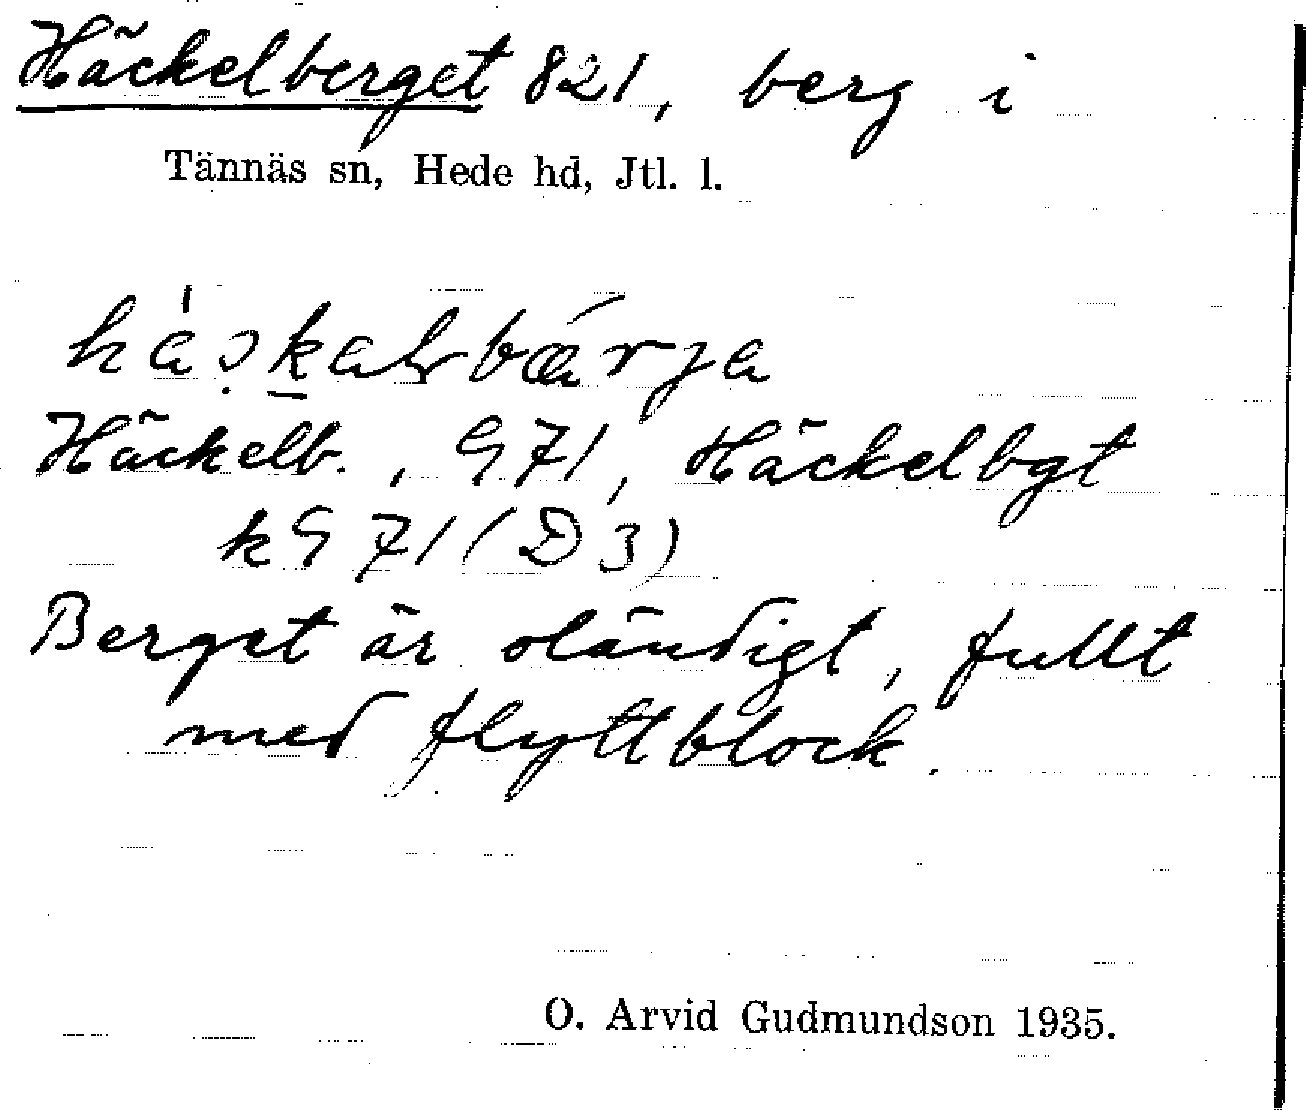 Häckelberget 821, berg i
Tännäs sn, Hede hd, Jtl. l.
Häckelb., G71, Häckelbgt
kG71 (D3)
Berget är oländigt, fullt
med flyttblock.
O. Arvid Gudmundson 1935.